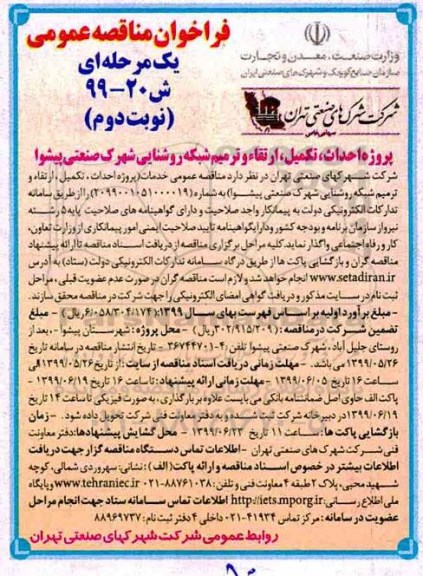 فراخوان مناقصه عمومی
یک مرحله‌ای
ش ۲۰-۹۹
(نوبت دوم)
وزارت صنعت، معدن و تجارت
سازمان صنایع کوچک و شهرک‌های صنعتی ایران
شرکت شهرک‌های صنعتی تهران
پروژه احداث، تکمیل، ارتقاء و ترمیم شبکه روشنایی شهرک صنعتی پیشوا
شرکت شهرکهای صنعتی تهران در نظر دارد مناقصه عمومی خدمات (پروژه احداث، تکمیل، ارتقاء و
ترمیم شبکه روشنایی شهرک صنعتی پیشوا) به شماره (۲۰۹۹۰۰۱۰۵۱۰۰۰۰۱۹) را از طریق سامانه
تدارکات الکترونیکی دولت به پیمانکار واجد صلاحیت و دارای گواهینامه های صلاحیت پایه ۵ رشته
نیرو از سازمان برنامه و بودجه کشور و دارای گواهینامه تایید صلاحیت ایمنی امور پیمانکاری از وزارت تعاون،
کار و رفاه اجتماعی واگذار نماید. کلیه مراحل برگزاری مناقصه از دریافت اسناد مناقصه تا ارائه پیشنهاد
مناقصه گران و بازگشایی پاکت ها از طریق درگاه سامانه تدارکات الکترونیکی دولت (ستاد) به آدرس
www.setadiran.ir انجام خواهد شد و لازم است مناقصه گران در صورت عدم عضویت قبلی، مراحل
ثبت نام در سایت مذکور و دریافت گواهی امضای الکترونیکی را جهت شرکت در مناقصه محقق سازند.
- مبلغ برآورد اولیه بر اساس فهرست بهای سال ۱۳۹۹: (۶/۰۵۸/۳۰۴/۱۷۴ ریال) - مبلغ
تضمین شرکت در مناقصه: (۳۰۲/۹۱۵/۲۰۹ ریال) - محل پروژه: شهرستان پیشوا، بعد از
روستای جلیل آباد، شهرک صنعتی پیشوا تلفن: ۴-۳۶۷۴۴۷۰۱ - تاریخ انتشار مناقصه در سامانه تاریخ
۱۳۹۹/۰۵/۲۶ می باشد. - مهلت زمانی دریافت اسناد مناقصه از سایت: از تاریخ ۱۳۹۹/۰۵/۲۶ الی
ساعت ۱۶ تاریخ ۱۳۹۹/۰۶/۰۵ - مهلت زمانی ارائه پیشنهاد: تا ساعت ۱۶ تاریخ ۱۳۹۹/۰۶/۱۹ -
پاکت الف حاوی اصل ضمانتنامه بانکی می بایست علاوه بر بارگذاری، به صورت فیزیکی تا ساعت ۱۴ تاریخ
۱۳۹۹/۰۶/۱۹ در دبیرخانه شرکت ثبت و به امور قراردادهای معاونت فنی شرکت تحویل داده شود. - زمان
بازگشایی پاکت ها: ساعت ۱۱ تاریخ ۱۳۹۹/۰۶/۲۳ - محل گشایش پیشنهادها: دفتر معاونت
فنی شرکت شهرک های صنعتی تهران - اطلاعات تماس دستگاه مناقصه گزار جهت دریافت
اطلاعات بیشتر در خصوص اسناد مناقصه و ارائه پاکت (الف): نشانی: سهروردی شمالی، کوچه
شهید محبی، پلاک ۲ طبقه ۴ معاونت فنی و تلفن: ۸۸۷۶۱۰۳۸-۰۲۱ www.tehraniec.ir و پایگاه
ملی اطلاع رسانی: http://iets.mporg.ir اطلاعات تماس سامانه ستاد جهت انجام مراحل
عضویت در سامانه: مرکز تماس ۴۱۹۳۴-۰۲۱ داخلی ۴ دفتر ثبت نام: ۸۸۹۶۹۷۳۷
روابط عمومی شرکت شهرکهای صنعتی تهران